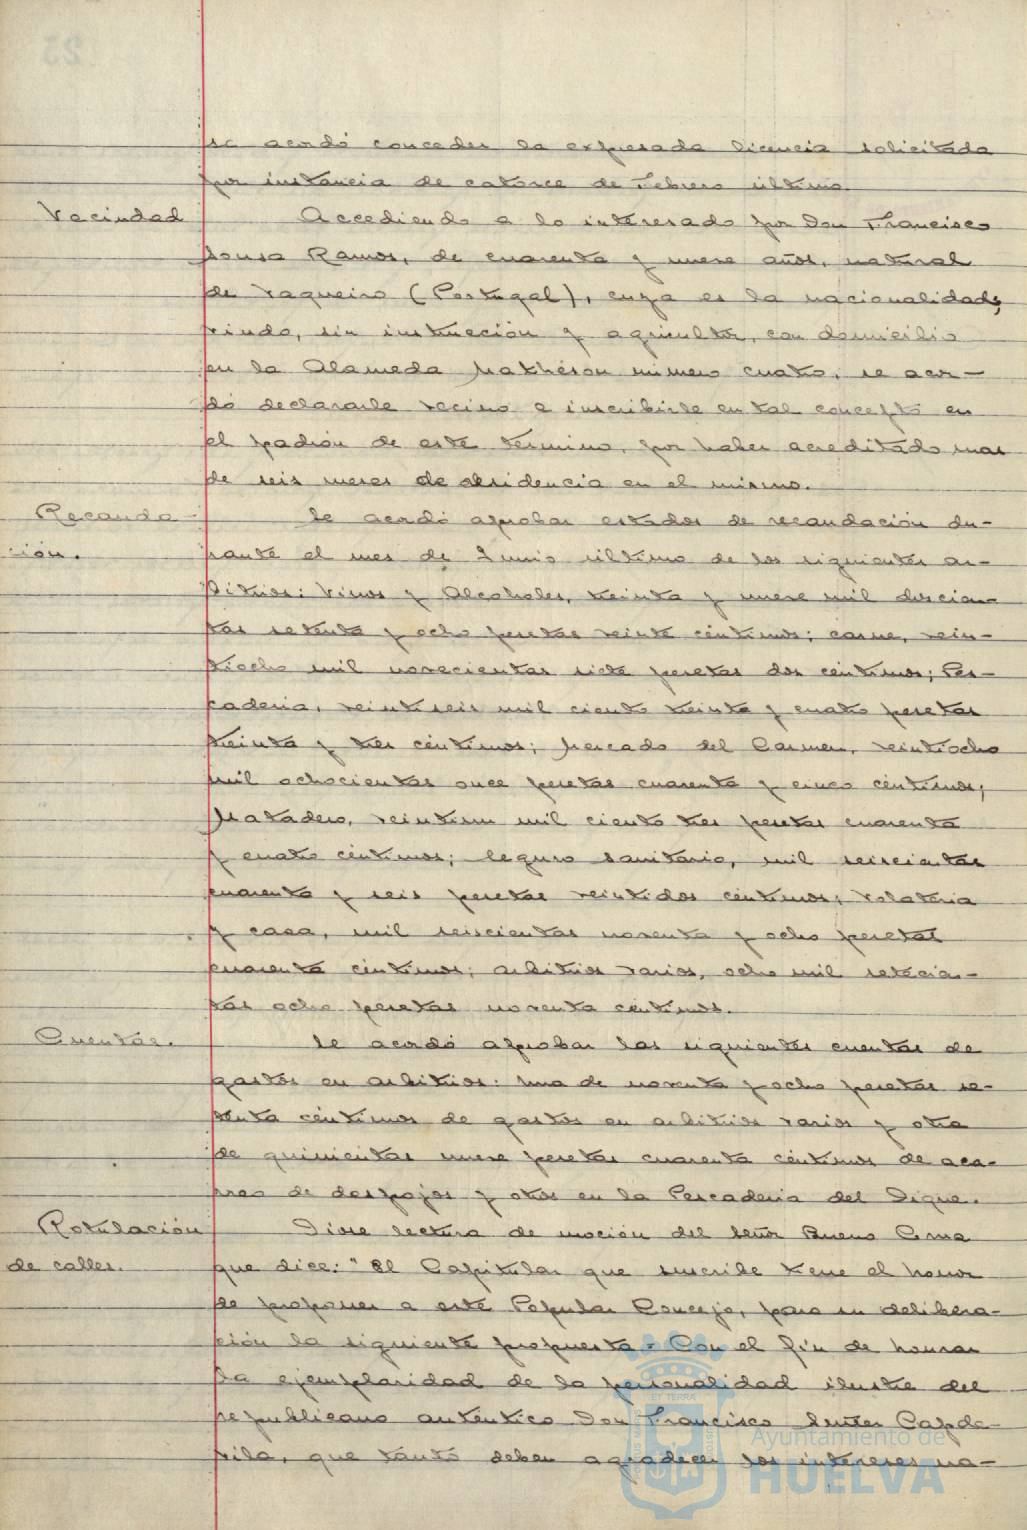 se acordó conceder la expresada licencia solicitada
por instancia de catorce de Febrero último
Vecindad
Accediendo a lo interesado por Don Francisco
Sousa Ramos, de cuarenta y nueve años, natural
de Vaqueiro (Portugal), cuya es la nacionalidad,
viudo, sin instrucción y agricultor, con domicilio
en la Alameda Matheson número cuatro, se acor-
dó declararle vecino e inscribirle en tal concepto en
el padrón de este término, por haber acreditado mas
de seis meses de residencia en el mismo.
Recauda
ción.
Se acordó aprobar estados de recaudación du-
rante el mes de Junio último de los siguientes ar-
bitrios: Vinos y Alcoholes, treinta y nueve mil doscien-
tas setenta y ocho pesetas veinte céntimos; carne, vein-
tiocho mil novecientas siete pesetas dos céntimos; Pes-
cadería, veintiseis mil ciento treinta y cuatro pesetas
treinta y tres céntimos; Mercado del Carmen, veintiocho
mil ochocientas once pesetas cuarenta y cinco céntimos;
Matadero, veintiun mil ciento tres pesetas cuarenta
y cuatro céntimos; Seguro sanitario, mil seiscientas
cuarenta y seis pesetas veintidos céntimos; volatería
y caza, mil seiscientas noventa y ocho pesetas
cuarenta céntimos; arbitrios varios, ocho mil setecien-
tas ocho pesetas noventa céntimos.
Cuentas.
Se acordó aprobar las siguientes cuentas de
gastos en arbitrios: una de noventa y ocho pesetas se-
tenta céntimos de gastos en arbitrios varios y otra
de quinientas nueve pesetas cuarenta céntimos de aca-
rreo de despojos y otros en la Pescadería del Dique.
Rotulación
de calles.
Diose lectura de moción del Señor Bueno
que dice: "El Capitular que suscribe tiene el honor
de proponer a este Popular Concejo, para su delibera-
ción la siguiente propuesta = Con el fín de honrar
la ejemplaridad de la personalidad ilustre del
republicano auténtico Don Francisco Capde-
vila, que tanto deben agradecer los intereses na-
Ayuntamiento de
HUELVA